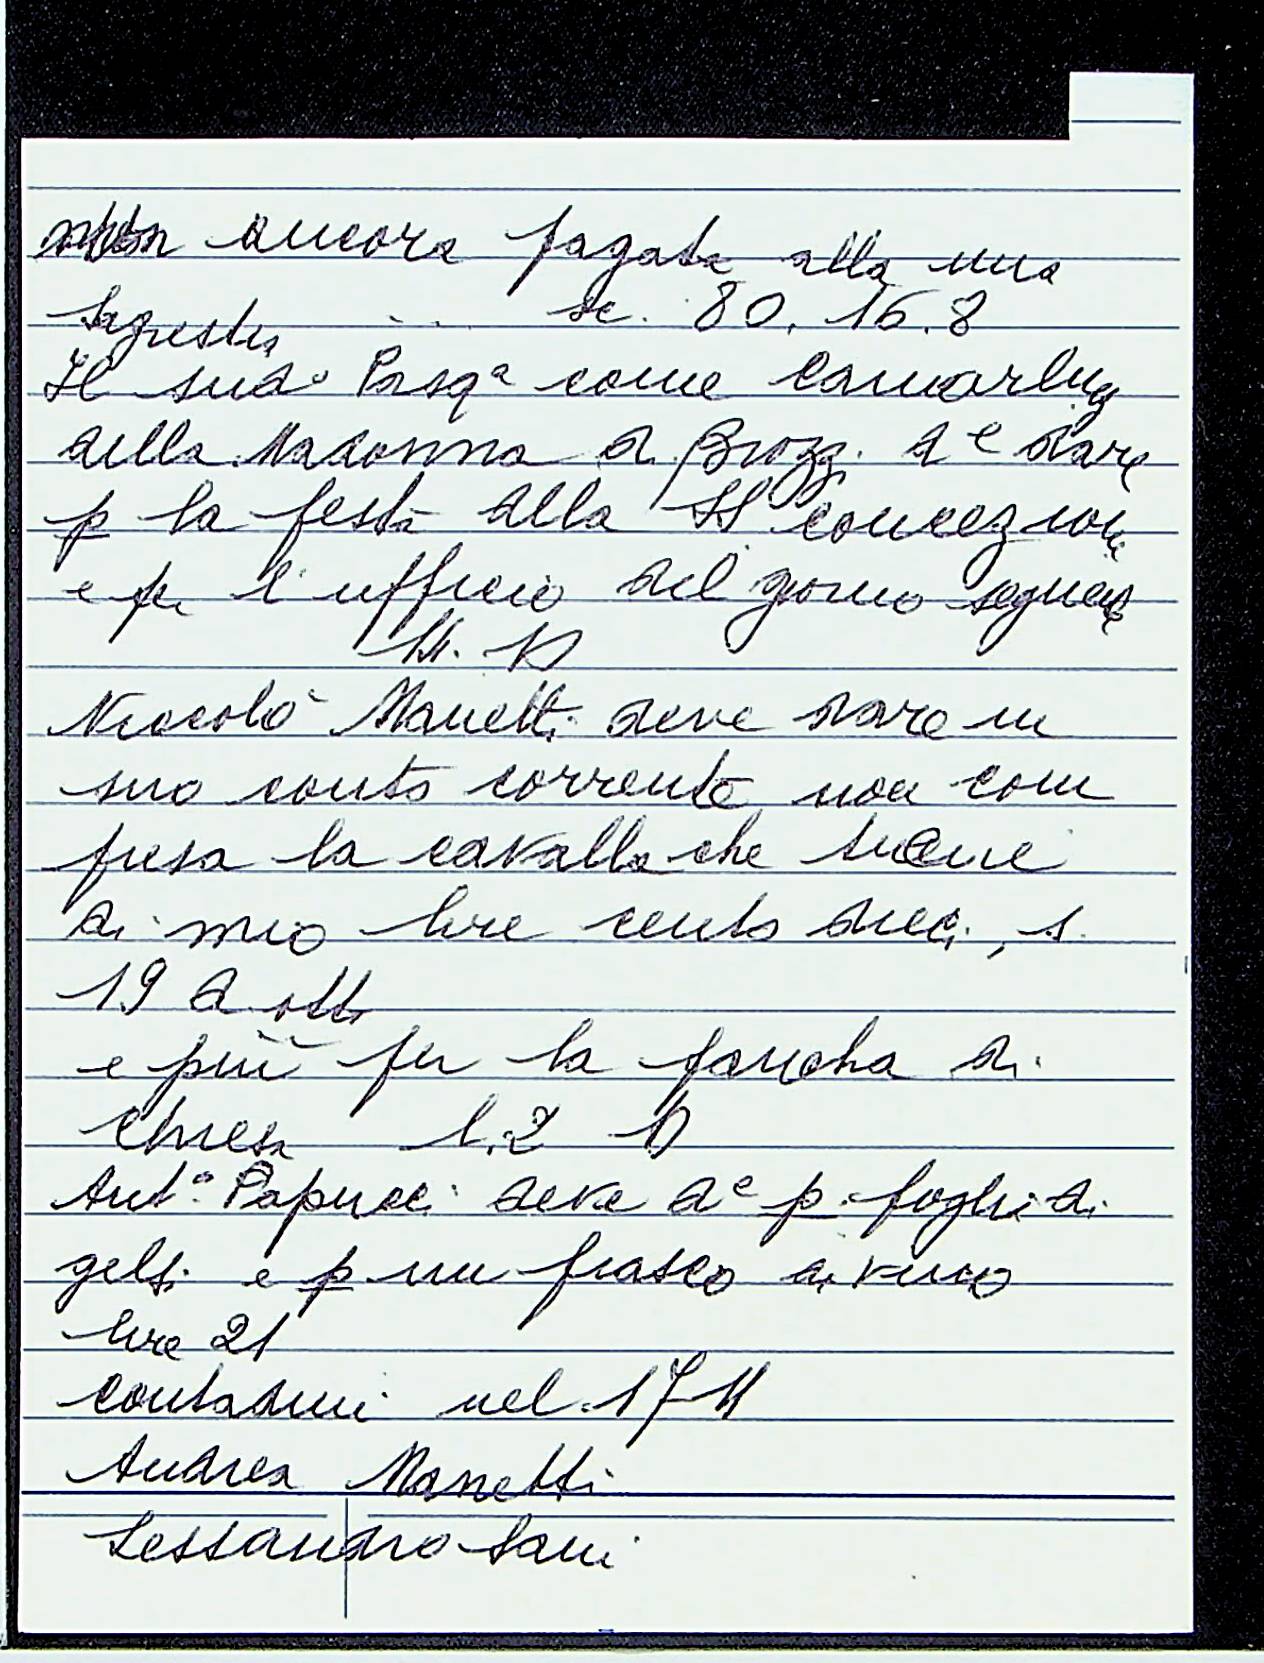 non ancora pagata alla mia
sagrestia ... sc. 80. 16. 8
Il sudº Pasqª come Camarling
della Madonna di Brozzi dᵉ dare
p la festa della SS Concezione
e per l'ufficio del giorno seguente
14. 10
Niccolò Manetti deve dare in
suo conto corrente non com
presa la cavalla che tiene
di mio lire cento dieci, s.
19 d. otto
e più per la pancha di
chiesa l. 2 10
Antº Papucci deve dᵉ p foglia di
gelsi e p un fiasco di vino
lire 21
contadini nel 1711
Andrea Manetti
Lessandro Sani